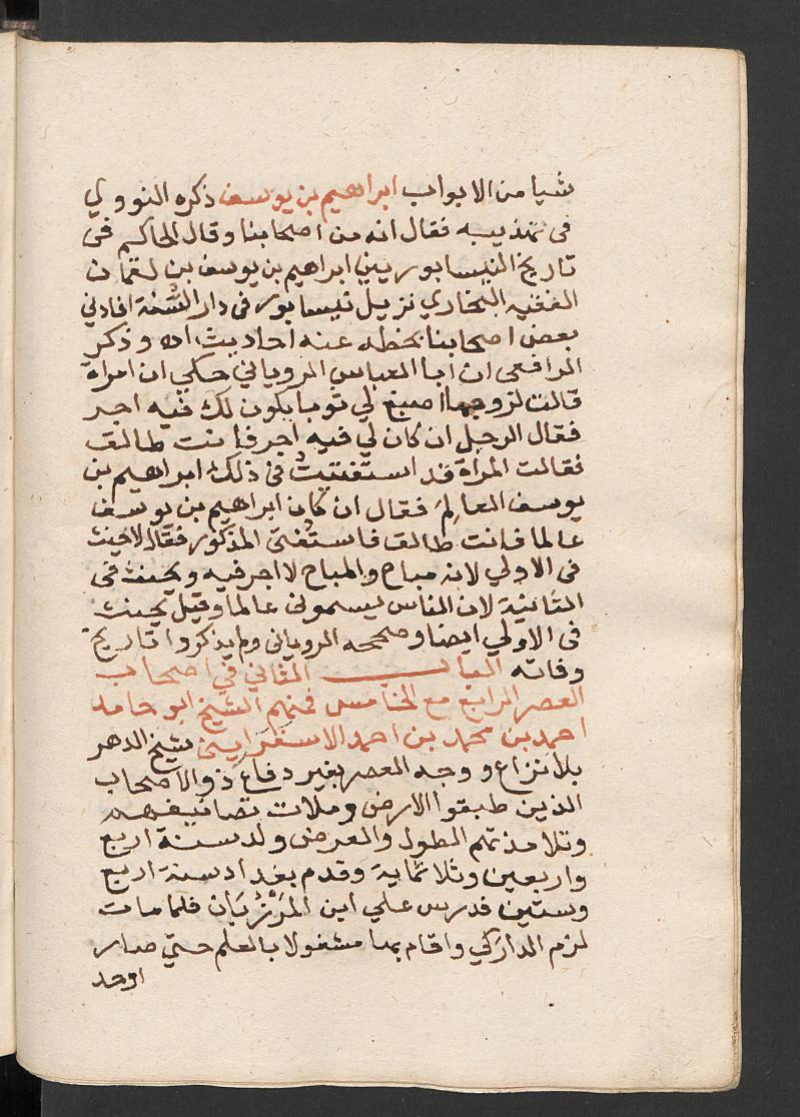 شيا من الابواب ابراهيم بن يوسف ذكره النووي
في تهذيبه فقال انه من اصحابنا وقال الحاكم في
تاريخ النيسابوريين ابراهيم بن يوسف بن لقمان
الفقيه البخاري نزيل نيسابور في دار السُّنة افادني
بعض اصحابنا بخطه عنه احاديث اه وذكر
الرافعي ان ابا العباس الروياني حكي ان امراة
قالت لزوجها اصبغ لي ثوبا يكون لك فيه اجر
فقال الرجل ان كان لي فيه اجر فانت طالق
فقالت المراة قد استفتيتُ في ذلك ابراهيم بن
يوسف العالِمَ فقال ان كان ابراهيم بن يوسف
عالما فانت طالق فاستُفتي المذكور فقال لا يحنث
في الاولي لانه مباح والمباح لا اجر فيه ويحنث في
الثانية لان الناس يسموني عالما وقيل يحنث
في الاولي ايضا وصححه الروياني ولم يذكروا تاريخ
وفاته الباب الثاني في اصحاب
العصر الرابع مع الخامس فمنهم الشيخ ابو حامد
احمد بن محمد بن احمد الاسفرايني شيخ الدهر
بلا نزاع ووجه العصر بغير دفاع ذو الاصحاب
الذين طبقوا الارض وملات تصانيفهم
وتلامذتهم الطول والعرض ولد سنة اربع
واربعين وثلاثماية وقدم بغداد سنة اربع
وستين فدرس علي ابن المَرْزُبَان فلما مات
لزم الداركي واقام بها مشغولا بالعلم حتي صار
اوحد